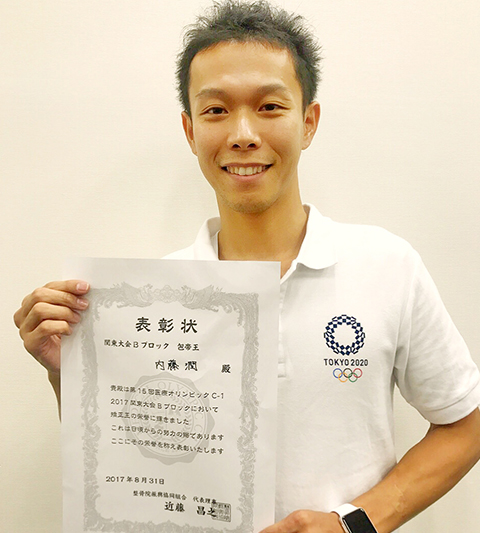 表彰状
関東大会Bブロック 包帯王
内藤 潤 殿
貴殿は第15回医療オリンピックC-1
2017関東大会Bブロックにおいて
矯正王の栄誉に輝きました
これは日頃からの努力の賜であります
ここにその栄誉を称え表彰いたします
2017年8月31日
整骨院振興協同組合 代表理事
近藤 昌之
TOKYO 2020